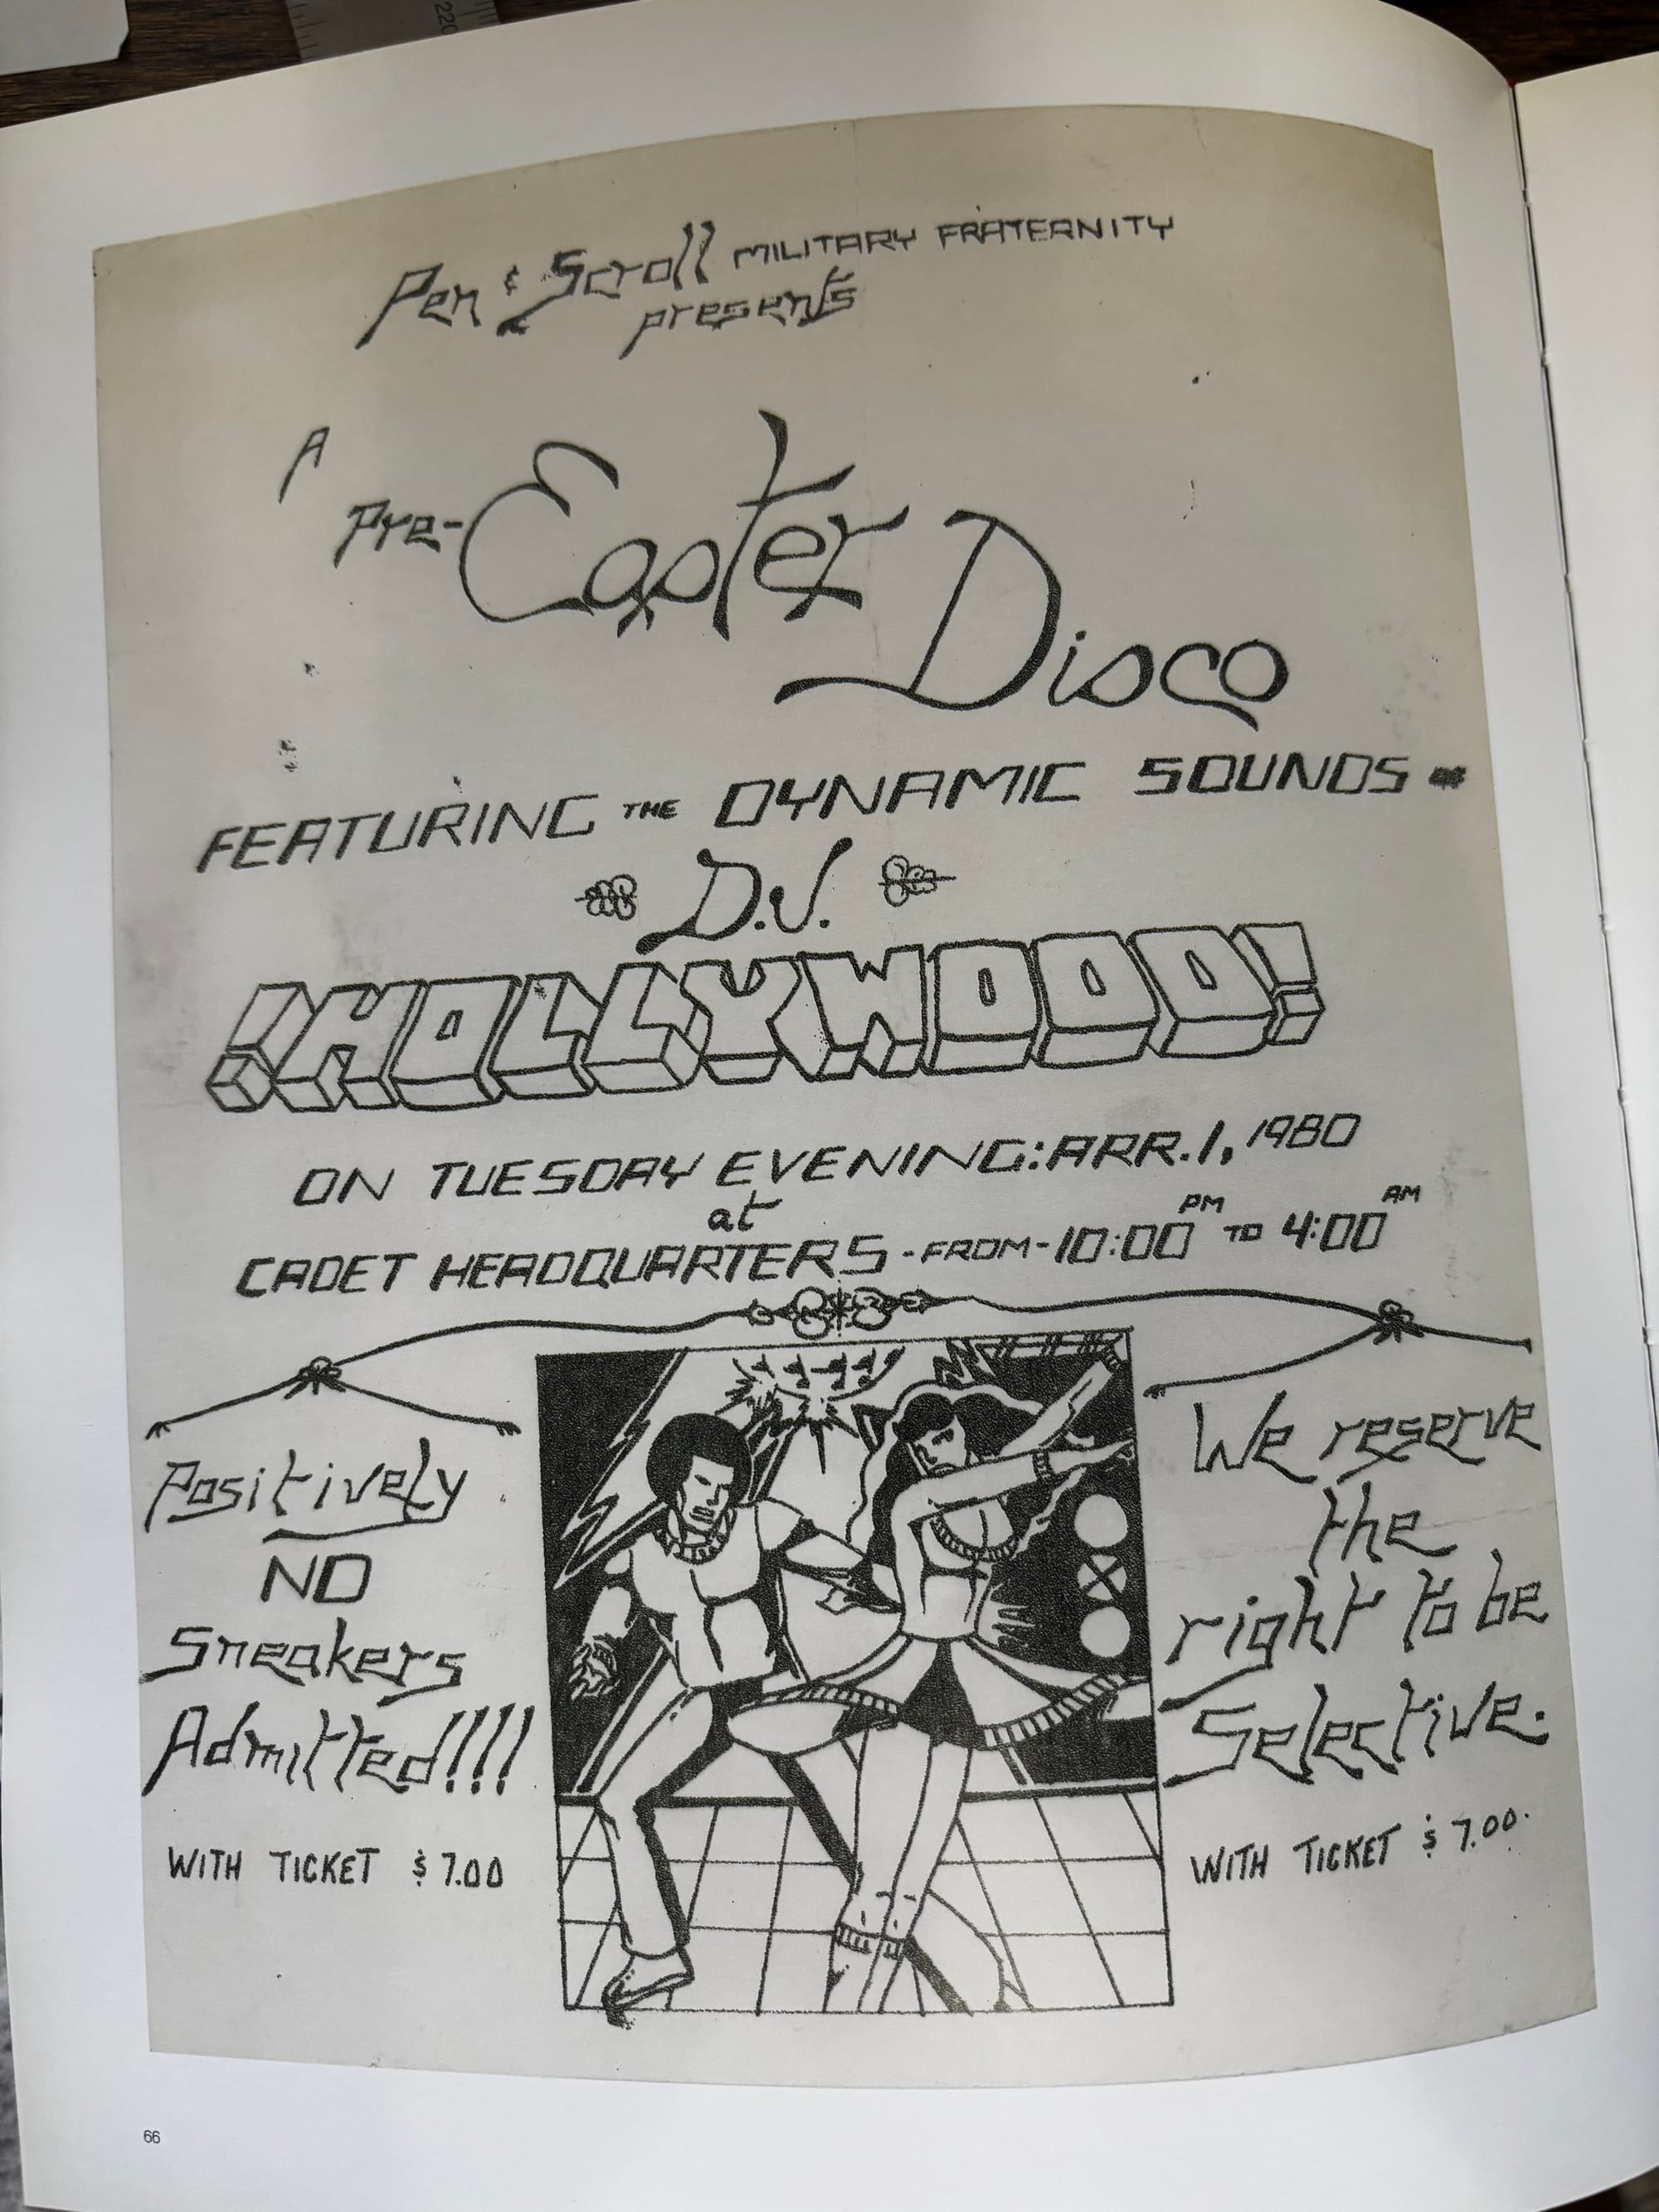 220
Pen & Scroll MILITARY FRATERNITY
presents
A
Pre-Easter Disco
FEATURING THE DYNAMIC SOUNDS OF
D.J.
!HOLLYWOOD!
ON TUESDAY EVENING: APR. 1, 1980
at
CADET HEADQUARTERS - FROM - 10:00 PM TO 4:00 AM
Positively
NO
Sneakers
Admitted!!!!
WITH TICKET $7.00
We reserve
the
right to be
Selective.
WITH TICKET $7.00.
66